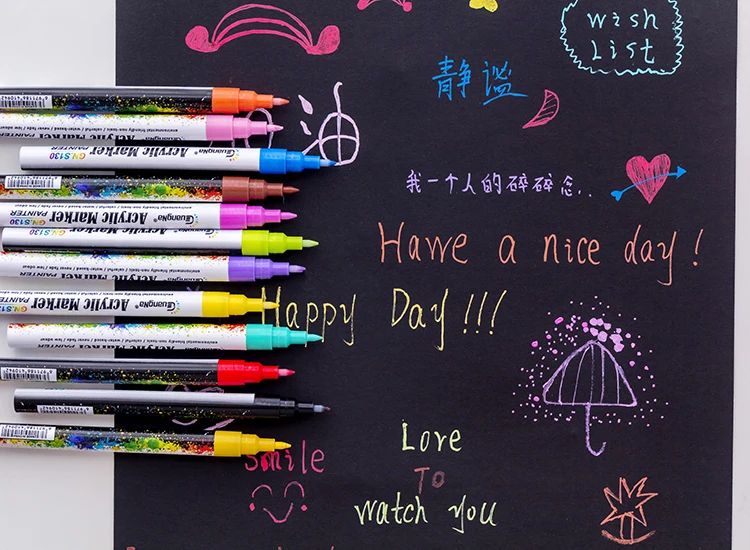 wish
List
静谧
油
我一个人的碎碎念..
Hawe a nice day!
Happy Day!!!
Love
To
watch you
Smile
GN.S130 Acrylic Marker GuangNa®
PAINTER
GuangNa® Acrylic Marker GN.S130
PAINTER
GN.S130
GuangNa® Acrylic Marker
PAINTER